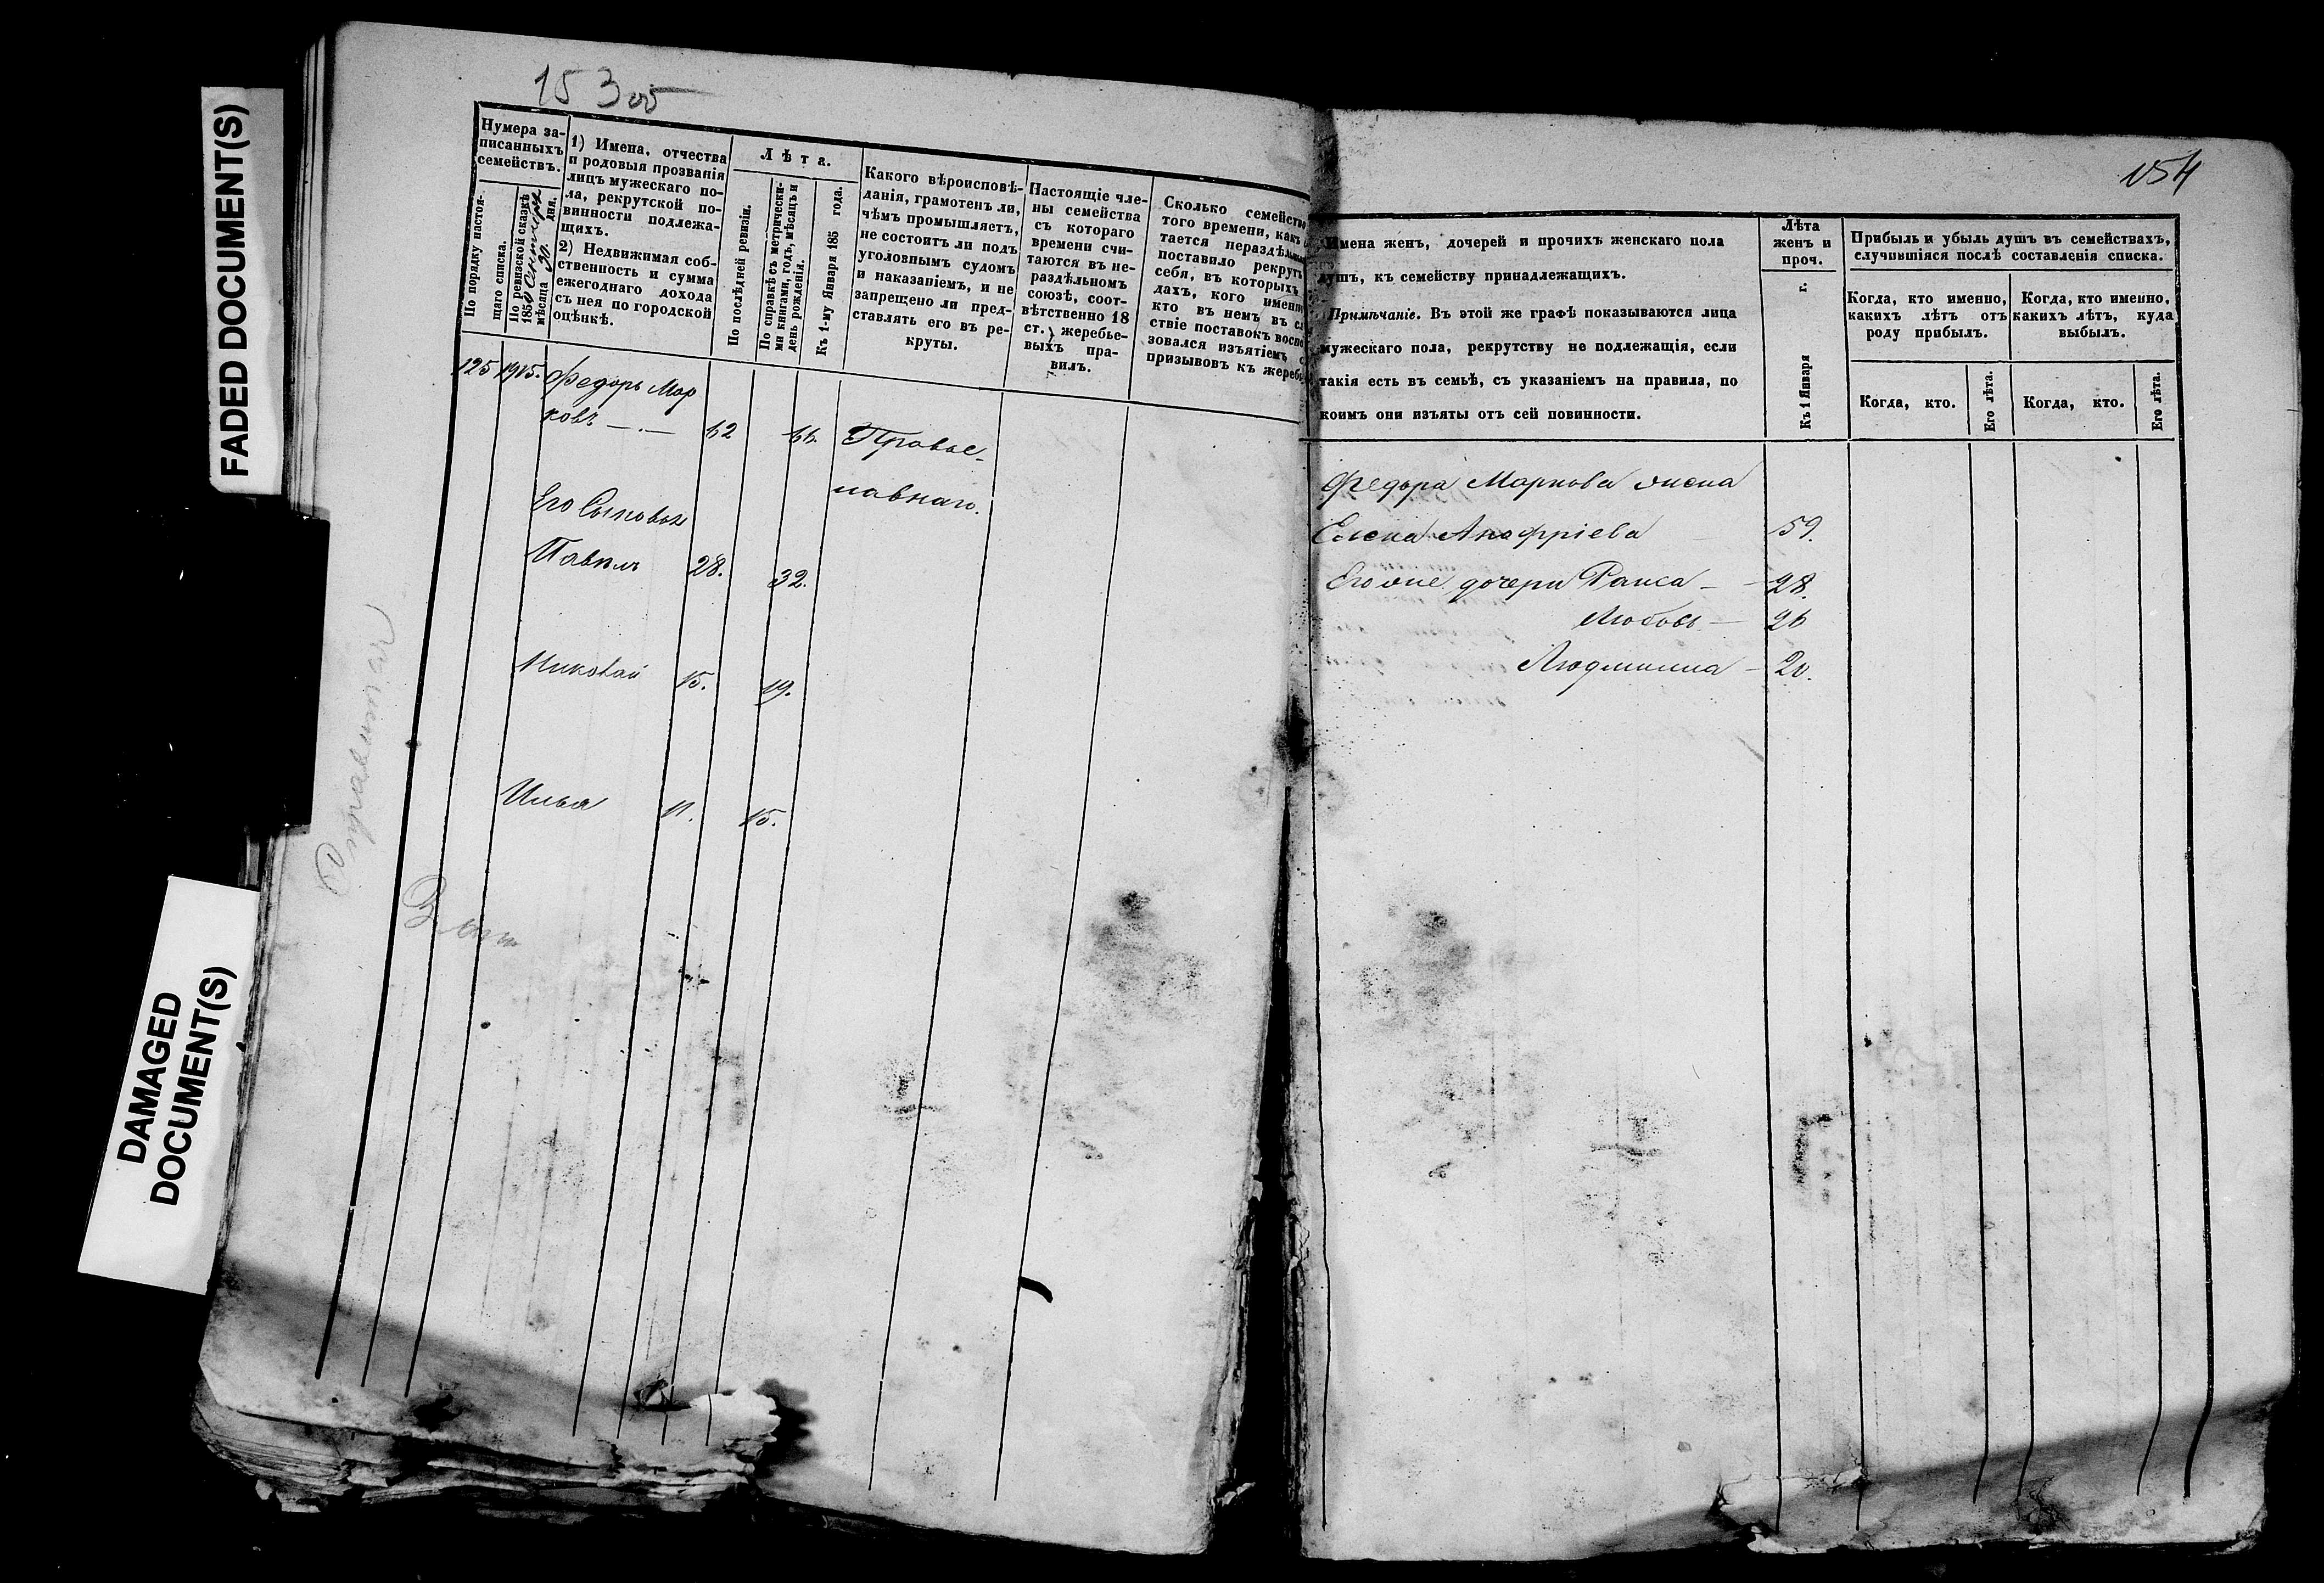 FADED DOCUMENT(S)
DAMAGED
DOCUMENT(S)
153 об
Нумера за-
писанныхъ
семействъ.
По порядку настоя-
щаго списка.
По ревизской сказкѣ
185
мѣсяца 30. дня.
1) Имена, отчества
и родовыя прозванія
лицъ мужескаго по-
ла, рекрутской по-
винности подлежа-
щихъ.
2) Недвижимая соб-
ственность и сумма
ежегоднаго дохода
съ нея по городской
оцѣнкѣ.
Лѣта.
По послѣдней ревизіи.
По справкѣ съ метрически-
ми книгами, годъ, мѣсяцъ и
день рожденія.
Къ 1-му Января 185 года.
Какого вѣроисповѣ-
данія, грамотенъ ли,
чѣмъ промышляетъ,
не состоитъ ли подъ
уголовнымъ судомъ
и наказаніемъ, и не
запрещено ли пред-
ставлять его въ ре-
круты.
Настоящіе чле-
ны семейства
съ котораго
времени счи-
таются въ не-
раздѣльномъ
союзѣ, соот-
вѣтственно 18
ст. жеребье-
выхъ пра-
вилъ.
Сколько семейство
того времени, какъ
тается нераздѣль
поставило рекрутъ
себя, въ которыхъ
дахъ, кого именно
кто въ немъ въ сл
ствіе поставокъ воспо
зовался изъятіемъ
призывовъ къ жереб
125 1915. Федоръ Мар
ковъ 62 66. Правос-
лавнаго.
Его Сыновья
Павелъ 28. 32.
Николай 15. 19.
Илья 11. 15.
154
Имена женъ, дочерей и прочихъ женскаго пола
душъ, къ семейству принадлежащихъ.
Примѣчаніе. Въ этой же графѣ показываются лица
мужескаго пола, рекрутству не подлежащія, если
такія есть въ семьѣ, съ указаніемъ на правила, по
коимъ они изъяты отъ сей повинности.
Лѣта
женъ и
проч.
Къ 1 Января г.
Прибыль и убыль душъ въ семействахъ,
случившіяся послѣ составленія списка.
Когда, кто именно,
какихъ лѣтъ отъ
роду прибылъ.
Когда, кто именно,
какихъ лѣтъ, куда
выбылъ.
Когда, кто.
Его лѣта.
Когда, кто.
Его лѣта.
Федора Маркова жена
Елена Анофріева 59.
Его же дочери Раиса 28.
Любовь 26
Людмилла 20.